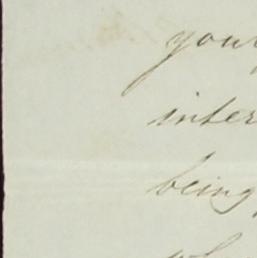 your
inter
being